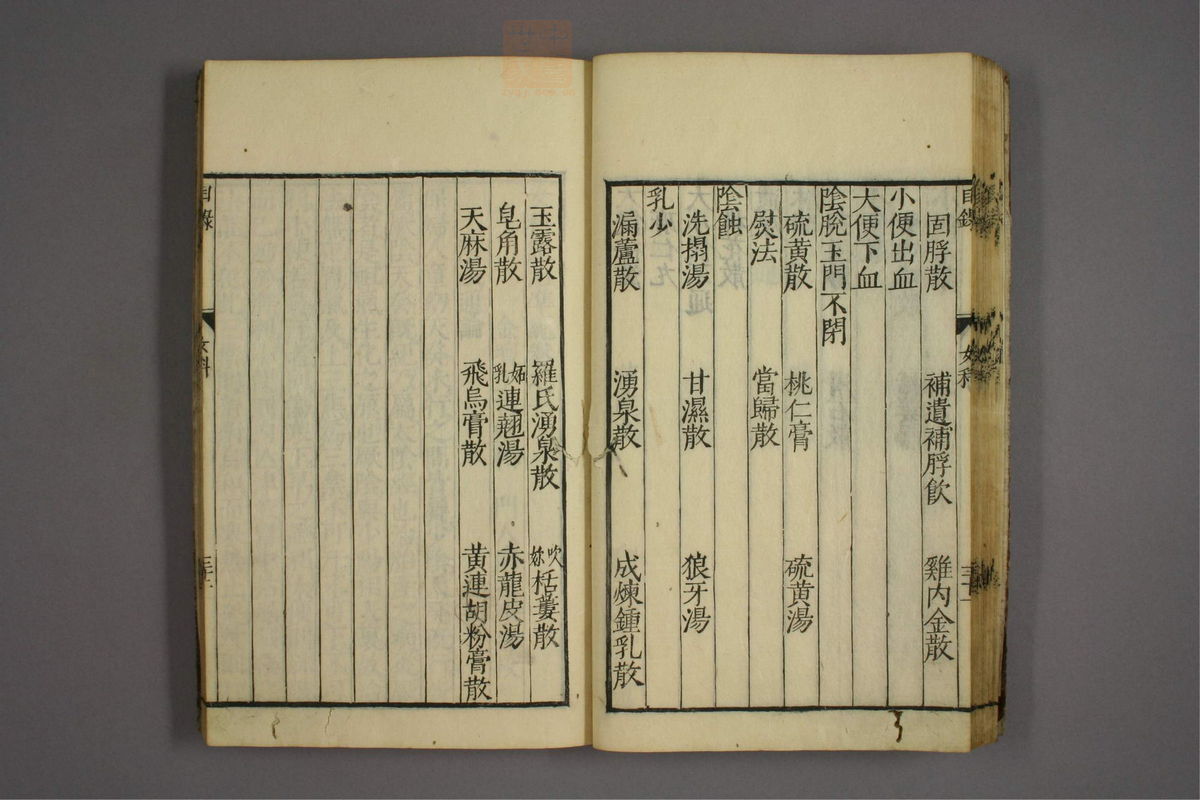 目錄 女科 三十二
固脬散 補遺補脬飲 雞内金散
小便出血
大便下血
陰脫玉門不閉
硫黃散 桃仁膏 硫黃湯
熨法 當歸散
陰蝕
洗搨湯 甘濕散 狼牙湯
乳少
漏蘆散 湧泉散 成煉鍾乳散
玉露散 羅氏湧泉散 吹妳栝蔞散
皂角散 妬乳連翹湯 赤龍皮湯
天麻湯 飛烏膏散 黃連胡粉膏散
目錄 女科